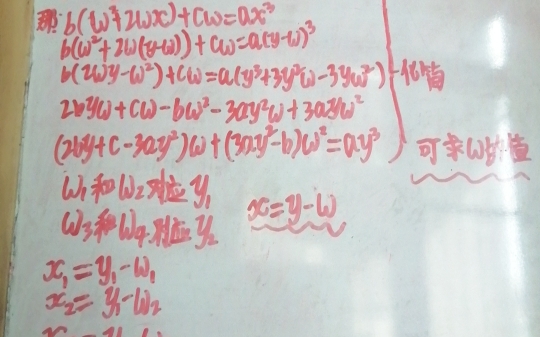 b(w²+2wx)+cw=ax³
b(w²+2w(y-w))+cw=a(y-w)³
b(2wy-w²)+cw=a(y³+3y²w-3yw²) 化简
2byw+cw-bw²-3ay²w+3ayw²
(2by+c-3ay²)w+(3ay²-b)w²=ay³ 可求w的值
w₁和w₂对应y₁
w₃和w₄对应y₂ x=y-w
x₁=y₁-w₁
x₂=y₁-w₂